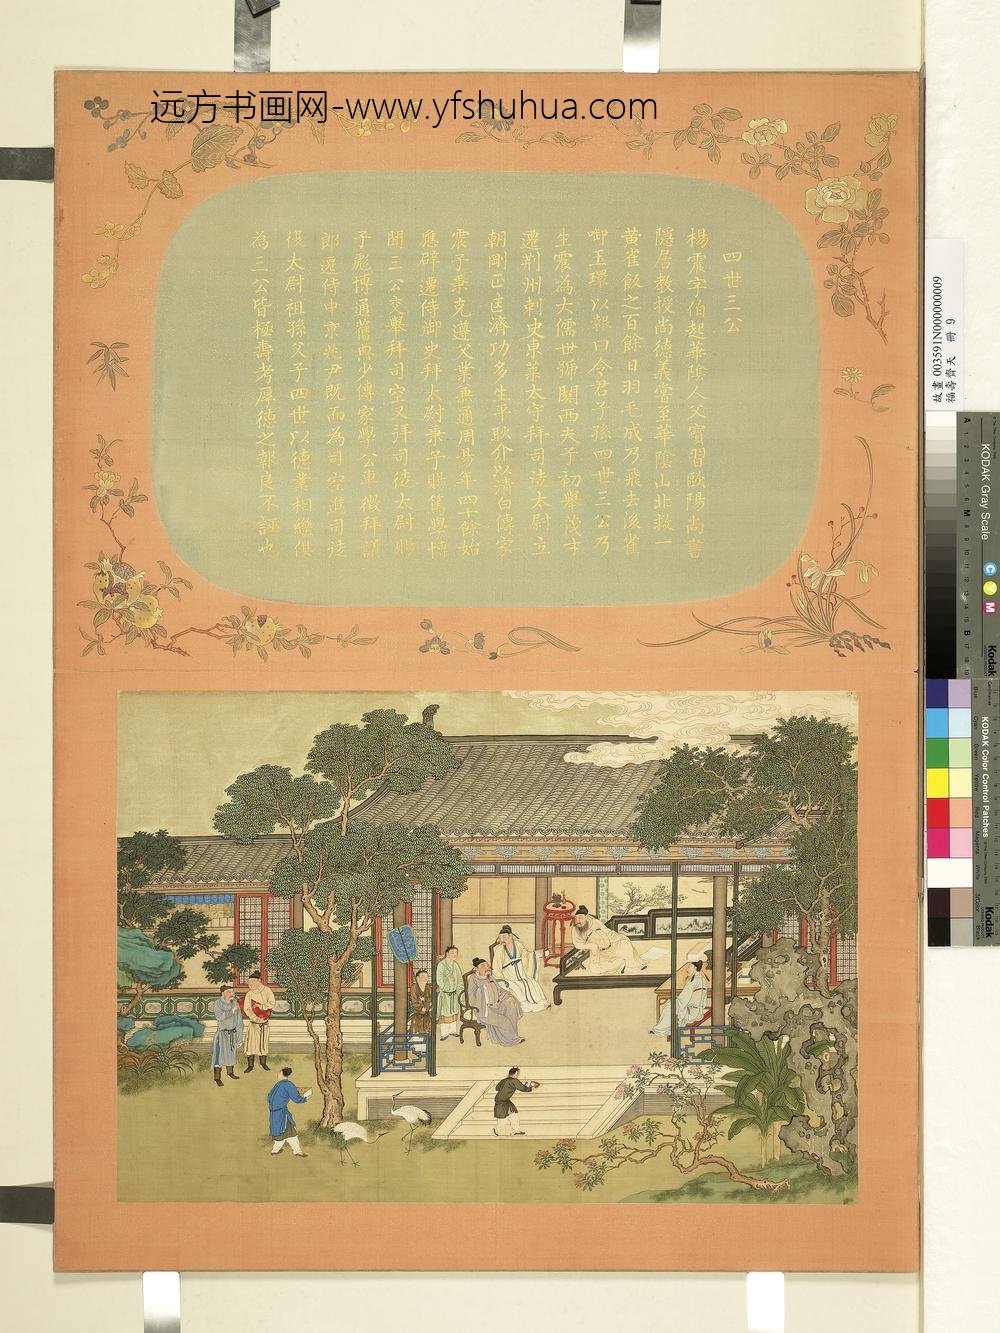 远方书画网-www.yfshuhua.com
四世三公
楊震字伯起華陰人父寶習歐陽尚書
隱居教授尚德義嘗至華陰山北救一
黃雀飲之百餘日羽毛成乃飛去後雀
啣玉環以報曰令君子孫四世三公乃
生震為大儒世號關西夫子初舉茂才
遷荊州刺史東萊太守拜司徒太尉立
朝剛正匡濟功多生平耿介以清白傳家
震子秉克遵父業兼通周易年四十餘始
應辟遷侍御史拜太尉秉子賜篤學博
聞三公交舉拜司空又拜司徒太尉賜
子彪博通舊典少傳家學公車徵拜議
郎遷侍中京兆尹既而為司空進司徒
復太尉祖孫父子四世以德業相繼俱
為三公皆極壽考厚德之報良不誣也
故畫 003591N000000009
福壽齊天 冊 9
KODAK Gray Scale
C
Y
M
Kodak
KODAK Color Control Patches
Kodak